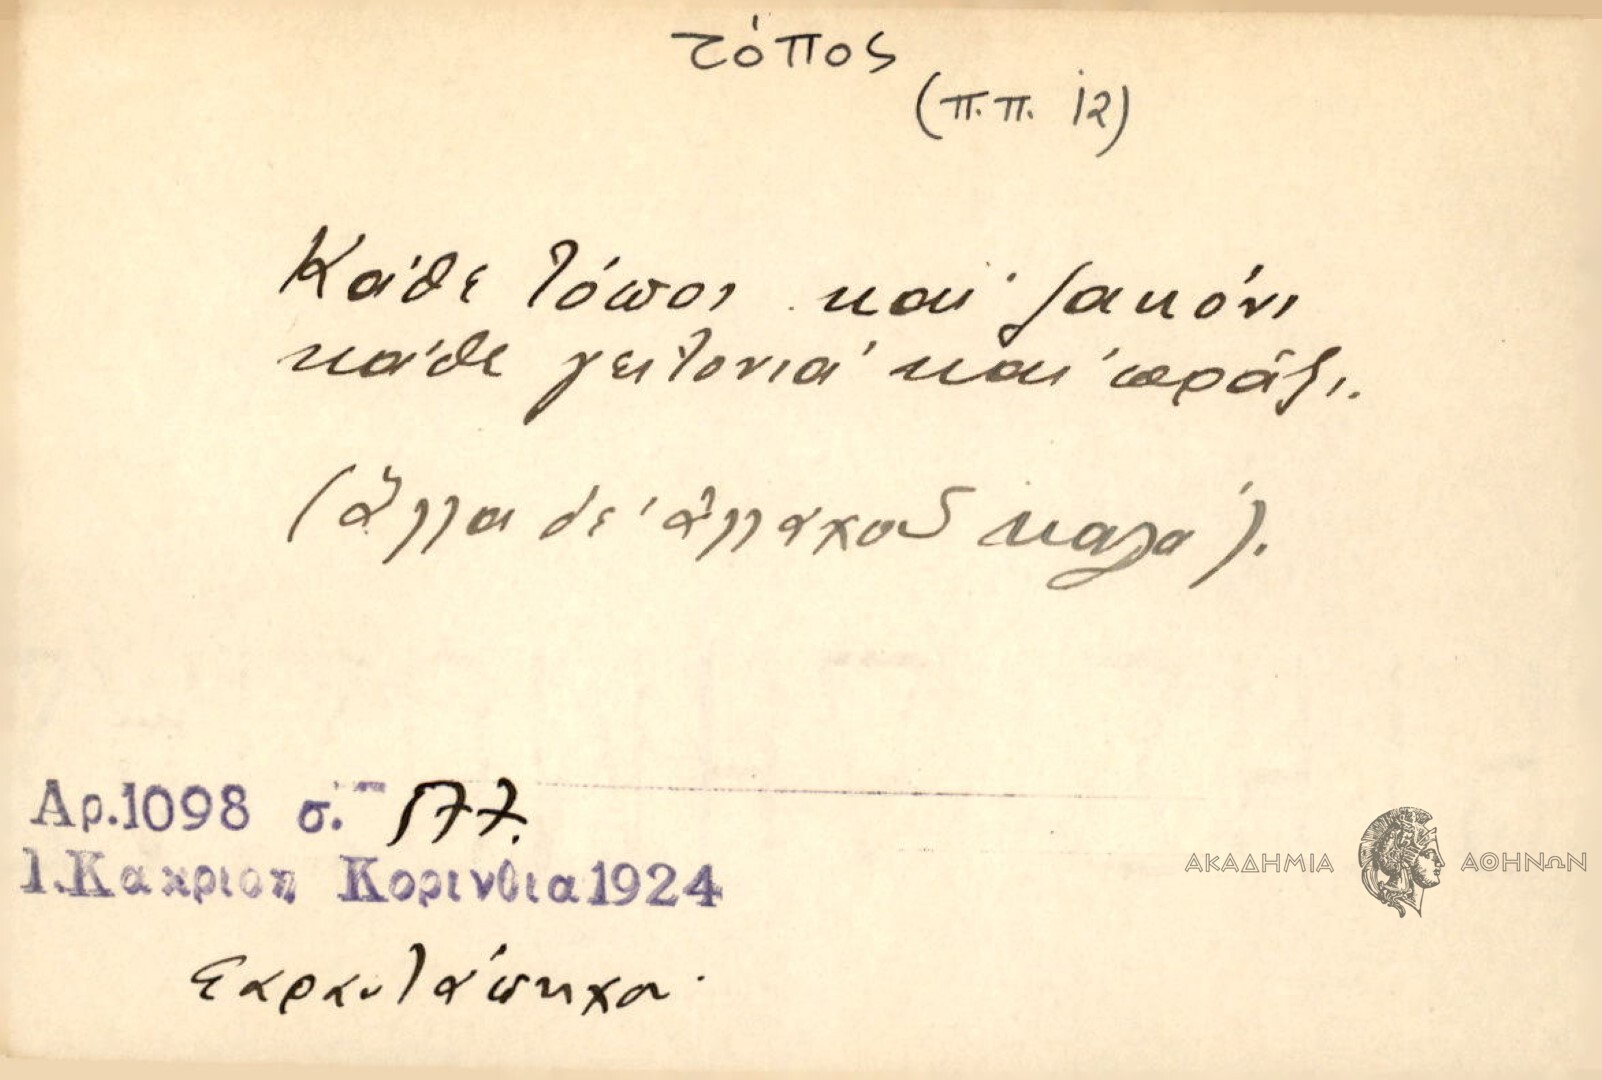 τόπος
(π.π. 12)
Κάθε τόπος και ζακόνι
κάθε γειτονιά και πράξι.
(ἄλλαι δέ ἀλλαχοῦ καλά).
Αρ.1098 σ. 577.
Ι.Κακριδη Κορινθια1924
Σαρανταπηχο
ΑΚΑΔΗΜΙΑ ΑΘΗΝΩΝ